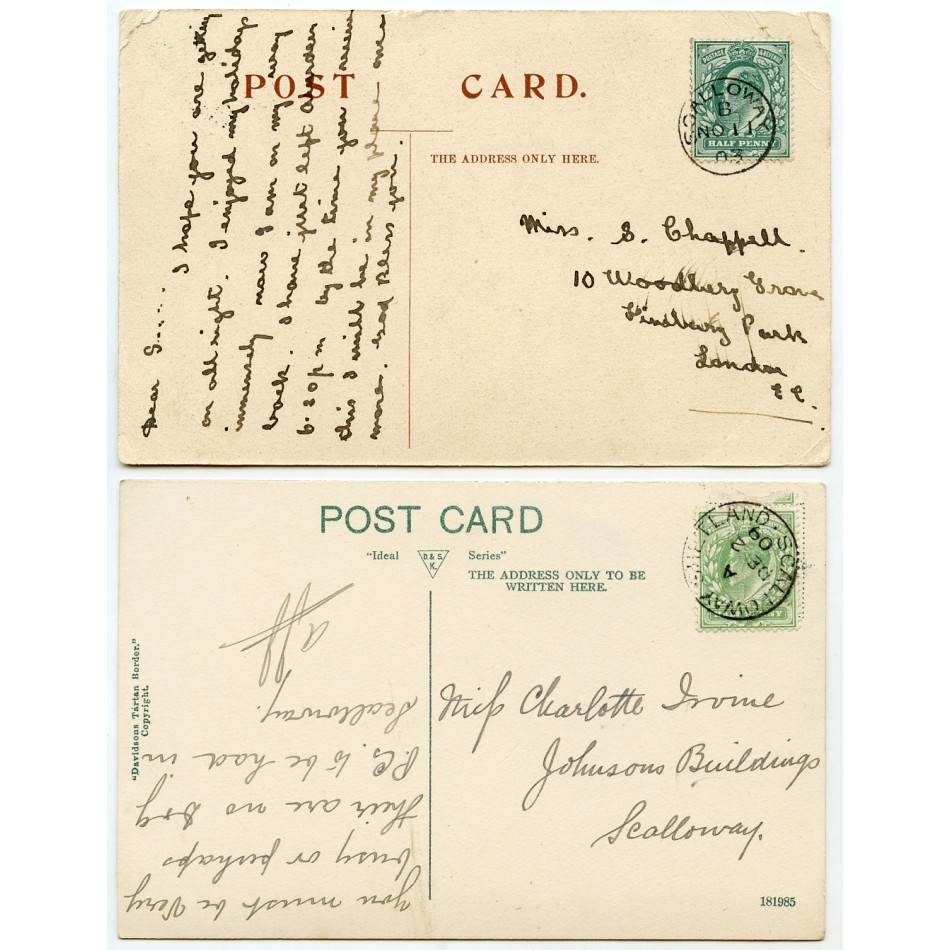 POST CARD.
THE ADDRESS ONLY HERE.
HALF PENNY
SCALLOWAY
B
NO 11
03
Dear S.....  I hope you are getting
on all right. I enjoyed my holidays
immensely now I am on my way
back. I have just left Aberdeen
6.30 pm by the time you receive
this I will be in my place once
more. God Bless you.
Miss. S. Chappell.
10 Woodbery Grove
Finsbury Park
London
E C.
POST CARD
"Ideal D.& S. K. Series"
THE ADDRESS ONLY TO BE
WRITTEN HERE.
SCALLOWAY
"Davidsons Tartan Border."
Copyright.
you must be Very
busy or perhaps
their are no
P.Cs. to be had in
Scalloway.
aff
Miss Charlotte Irvine
Johnsons Buildings
Scalloway.
181985